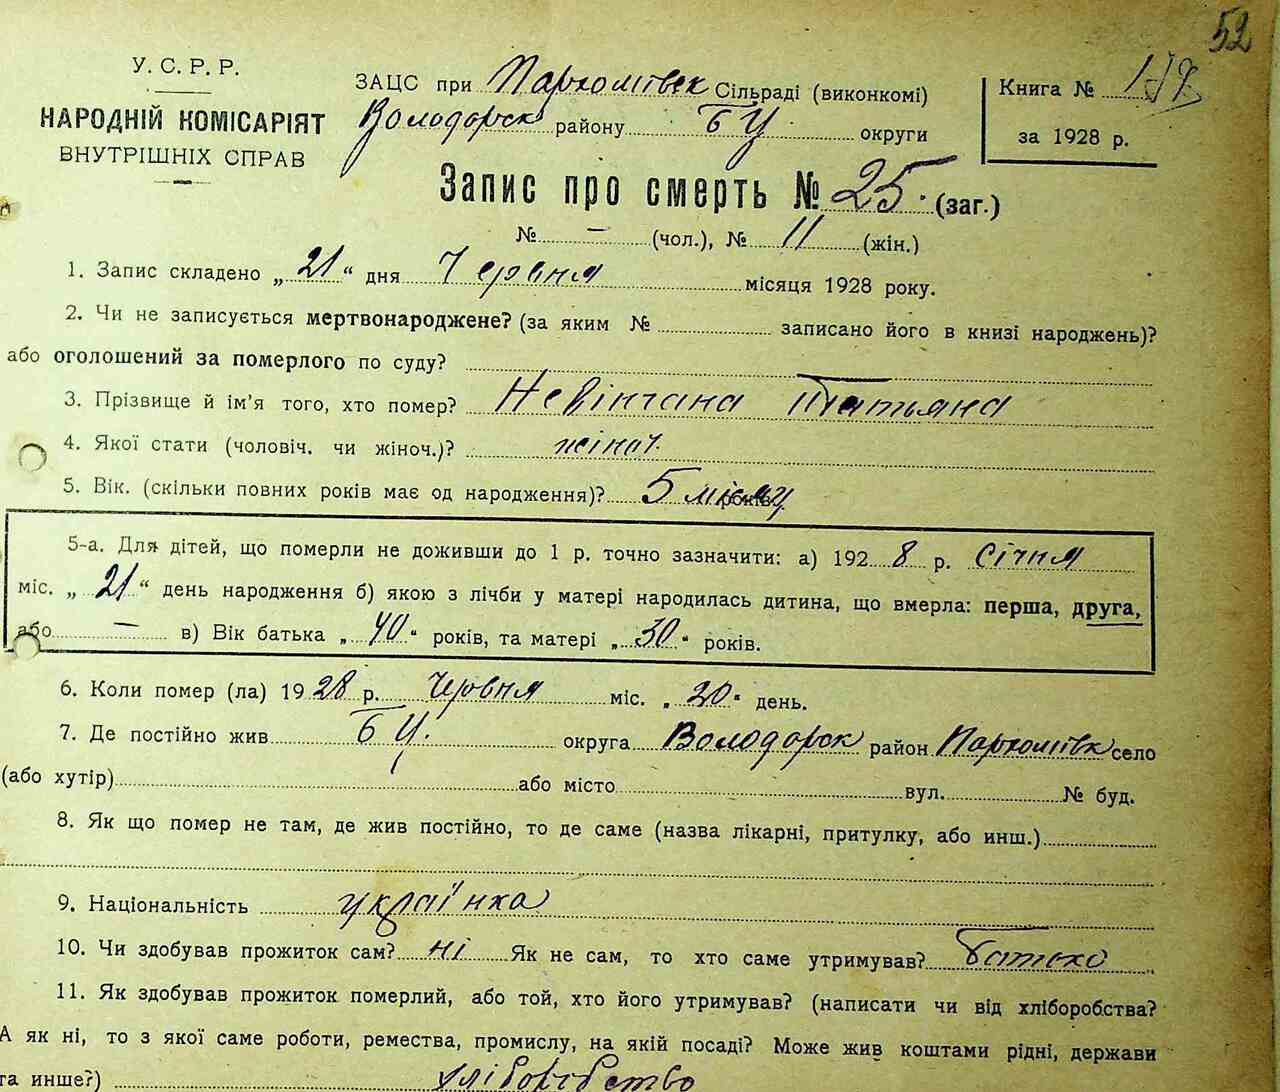 52
У. С. Р. Р.
НАРОДНІЙ КОМІСАРІЯТ
ВНУТРІШНІХ СПРАВ
ЗАЦС при Пархомівск Сільраді (виконкомі)
Володарск району БЦ округи
Книга №
за 1928 р.
Запис про смерть № 25. (заг.)
№ — (чол.), № 11 (жін.)
1. Запис складено „ 21 “ дня Червня місяця 1928 року.
2. Чи не записується мертвонароджене? (за яким № записано його в книзі народжень)?
або оголошений за померлого по суду?
3. Прізвище й ім’я того, хто помер? Невінчана Татьяна
4. Якої стати (чоловіч. чи жіноч.)? жіноч.
5. Вік. (скільки повних років має од народження)? 5 місяц років
5-а. Для дітей, що померли не доживши до 1 р. точно зазначити: а) 192 8 р. січня
міс. „ 21 “ день народження б) якою з лічби у матері народилась дитина, що вмерла: перша, друга,
або — в) Вік батька „ 40 “ років, та матері „ 30 “ років.
6. Коли помер (ла) 19 28 р. Червня міс. „ 20 “ день.
7. Де постійно жив БЦ. округа Володарск район Пархомівк село
(або хутір) або місто вул. № буд.
8. Як що помер не там, де жив постійно, то де саме (назва лікарні, притулку, або инш.)
9. Національність українка
10. Чи здобував прожиток сам? ні Як не сам, то хто саме утримував? Батько
11. Як здобував прожиток померлий, або той, хто його утримував? (написати чи від хліборобства?
А як ні, то з якої саме роботи, ремества, промислу, на якій посаді? Може жив коштами рідні, держави
та инше?) хліборобство